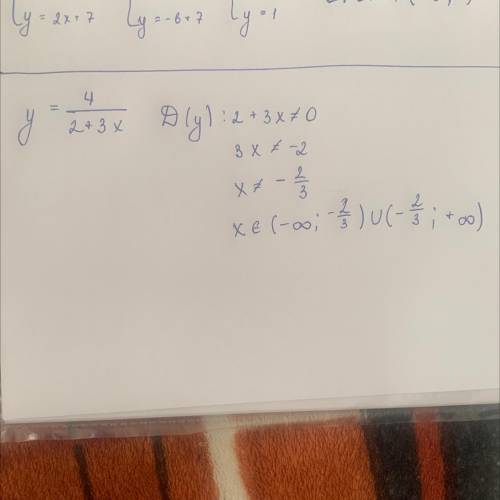 {y = 2x+7 {y = -6+7 {y = 1
y = 4/(2+3x) D(y): 2+3x≠0
3x ≠ -2
x ≠ -2/3
x ∈ (-∞; -2/3) ∪ (-2/3; +∞)